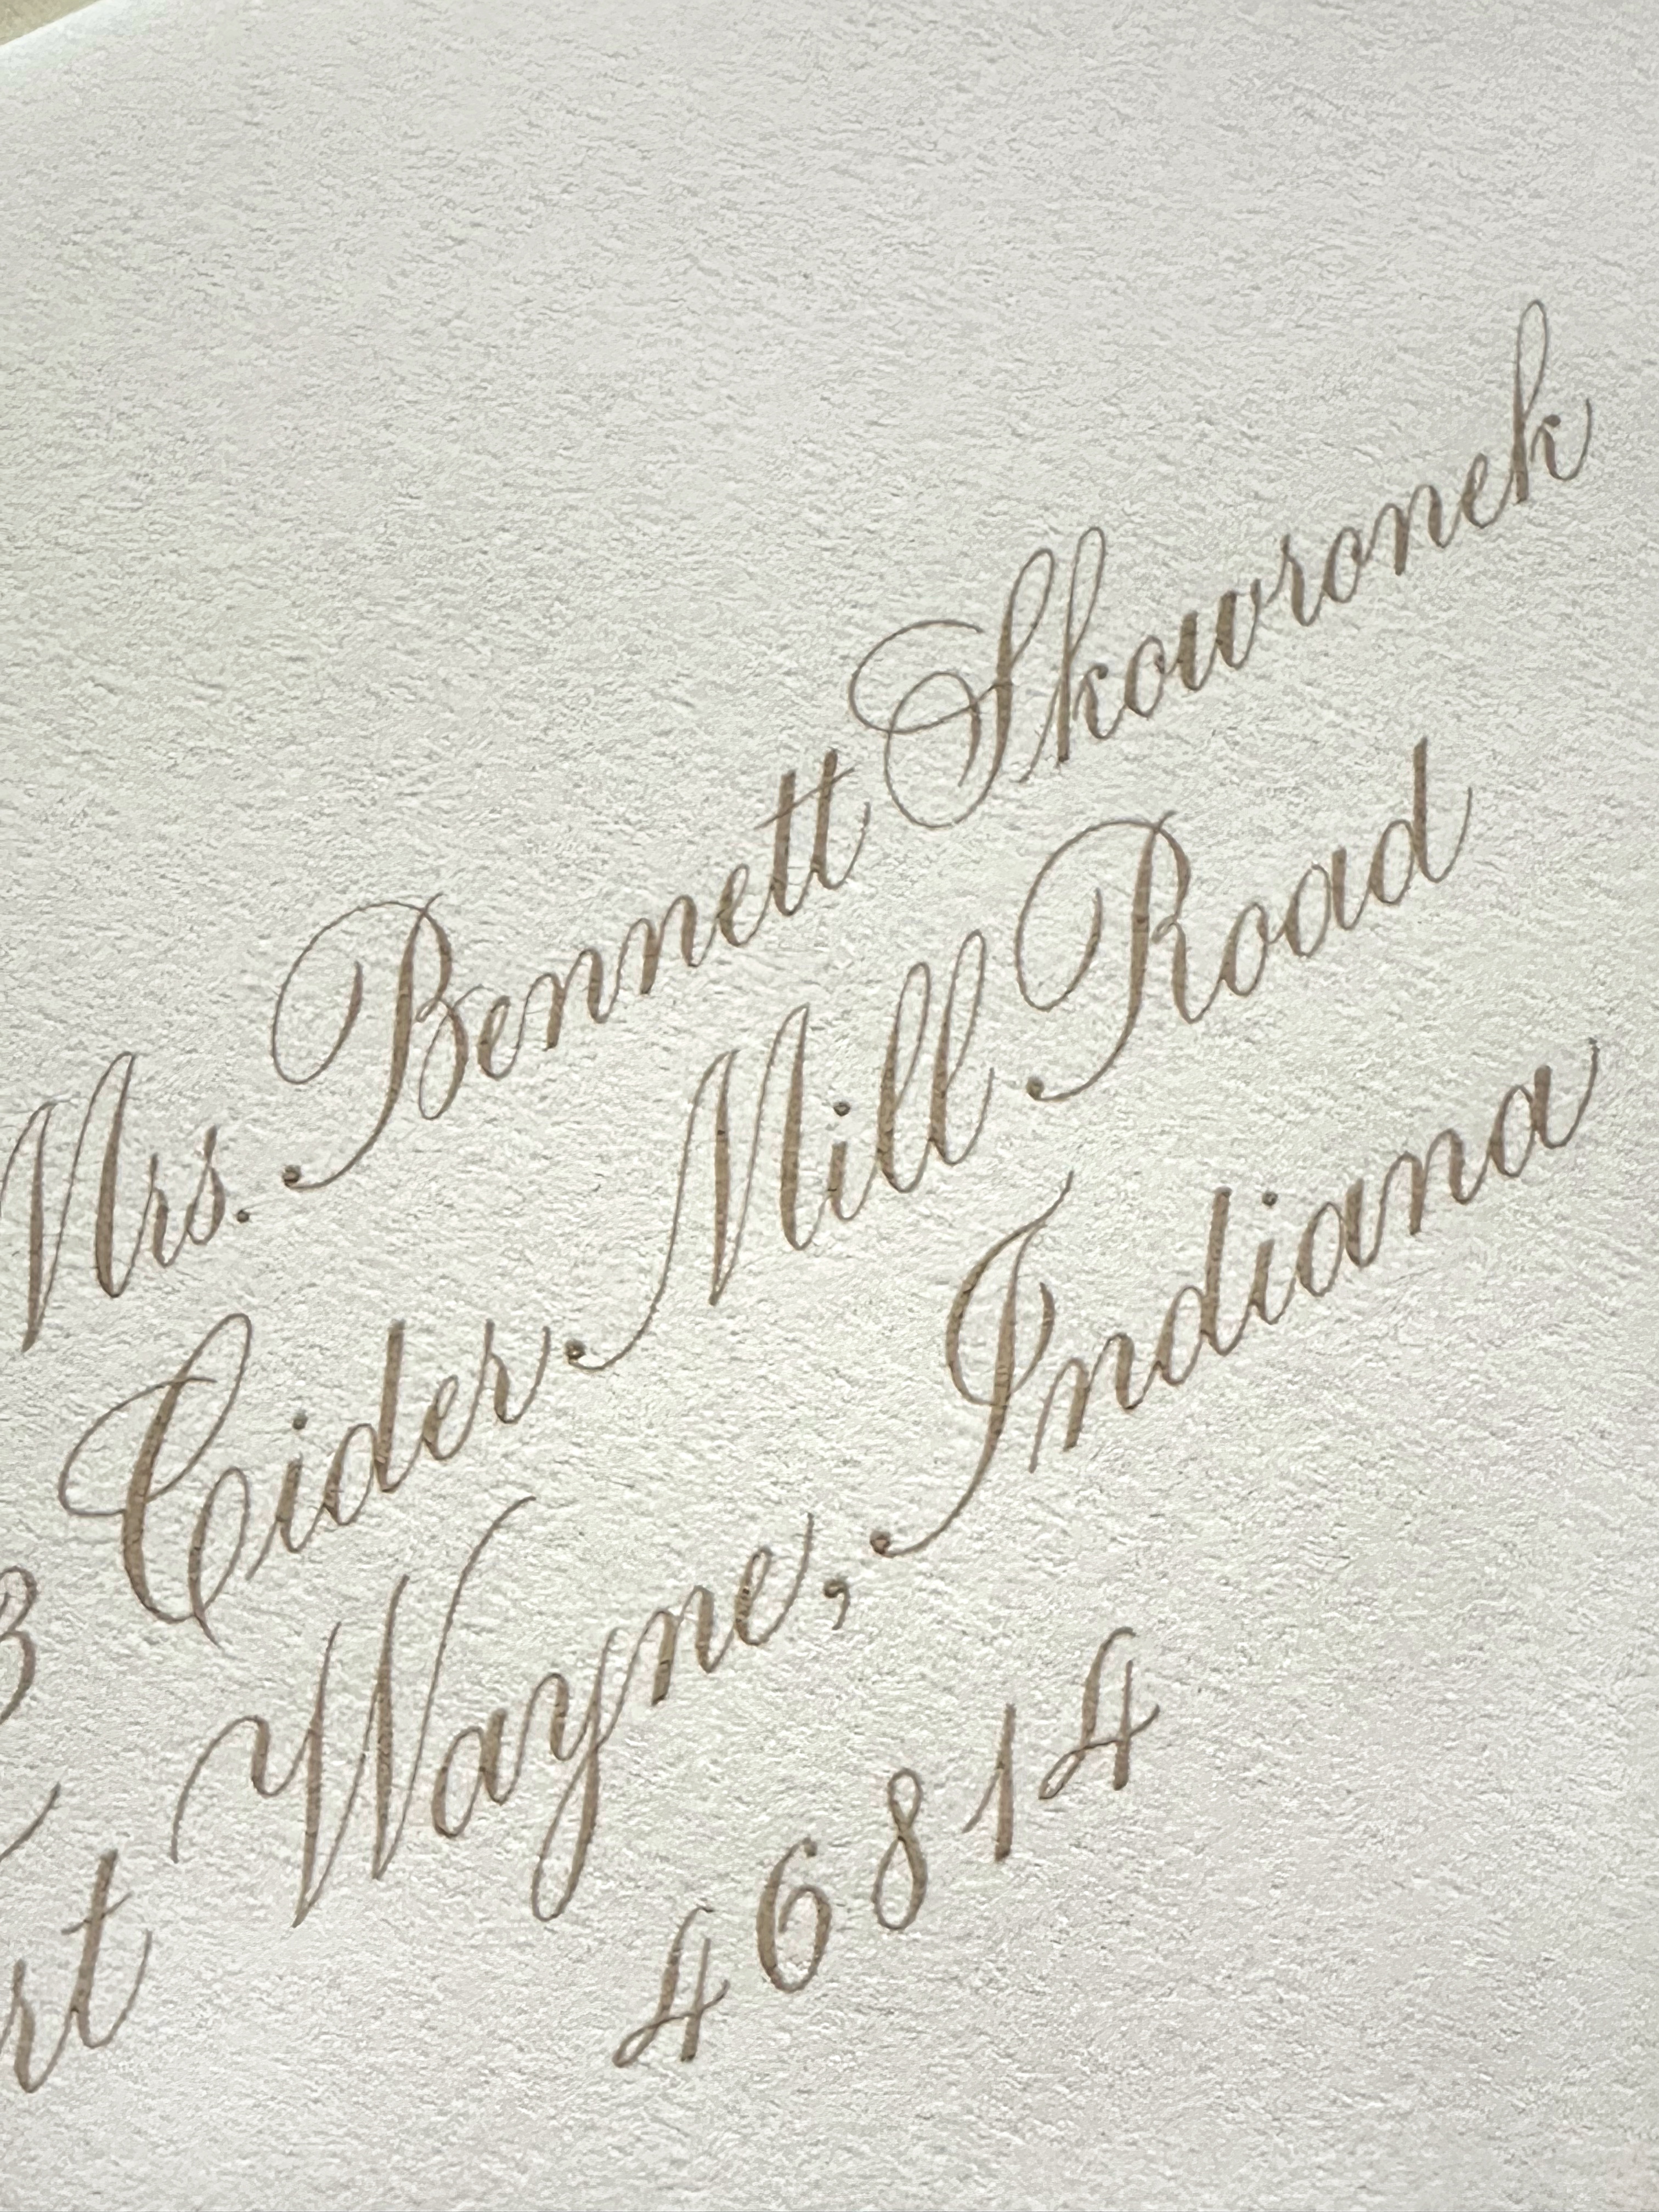 Mrs. Bennett Skowronek
3 Cider Mill Road
rt Wayne, Indiana
46814